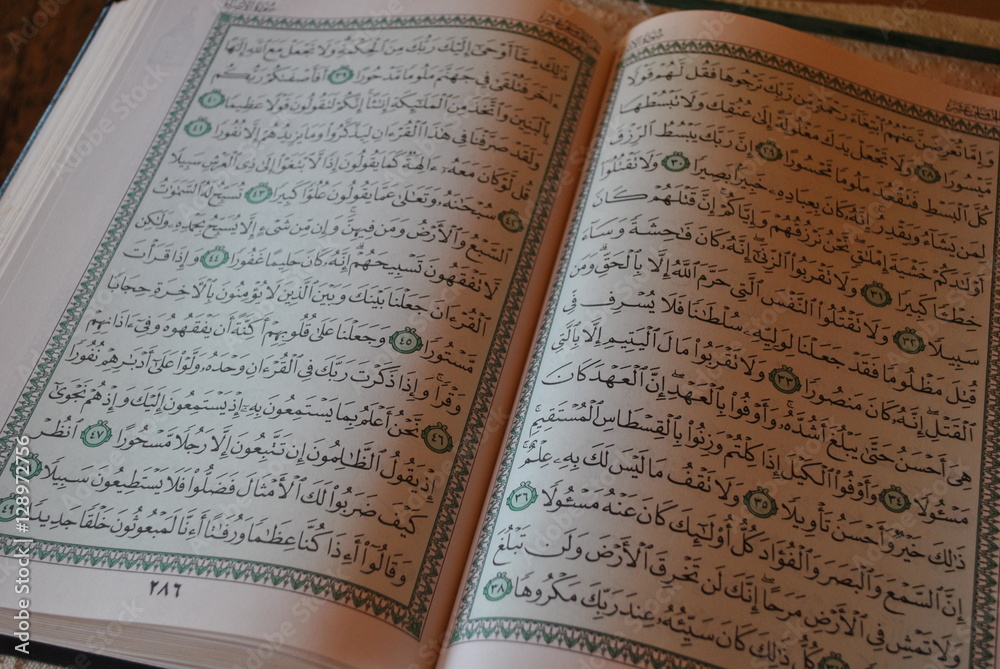 وَإِمَّا تُعْرِضَنَّ عَنْهُمُ ٱبْتِغَآءَ رَحْمَةٍ مِّن رَّبِّكَ تَرْجُوهَا فَقُل لَّهُمْ قَوْلًا
مَّيْسُورًا ٢٨ وَلَا تَجْعَلْ يَدَكَ مَغْلُولَةً إِلَىٰ عُنُقِكَ وَلَا تَبْسُطْهَا
كُلَّ ٱلْبَسْطِ فَتَقْعُدَ مَلُومًا مَّحْسُورًا ٢٩ إِنَّ رَبَّكَ يَبْسُطُ ٱلرِّزْقَ
لِمَن يَشَآءُ وَيَقْدِرُ إِنَّهُۥ كَانَ بِعِبَادِهِۦ خَبِيرًۢا بَصِيرًا ٣٠ وَلَا تَقْتُلُوٓا۟
أَوْلَٰدَكُمْ خَشْيَةَ إِمْلَٰقٍ نَّحْنُ نَرْزُقُهُمْ وَإِيَّاكُمْ إِنَّ قَتْلَهُمْ كَانَ
خِطْـًٔا كَبِيرًا ٣١ وَلَا تَقْرَبُوا۟ ٱلزِّنَىٰٓ إِنَّهُۥ كَانَ فَٰحِشَةً وَسَآءَ
سَبِيلًا ٣٢ وَلَا تَقْتُلُوا۟ ٱلنَّفْسَ ٱلَّتِى حَرَّمَ ٱللَّهُ إِلَّا بِٱلْحَقِّ وَمَن
قُتِلَ مَظْلُومًا فَقَدْ جَعَلْنَا لِوَلِيِّهِۦ سُلْطَٰنًا فَلَا يُسْرِف فِّى
ٱلْقَتْلِ إِنَّهُۥ كَانَ مَنصُورًا ٣٣ وَلَا تَقْرَبُوا۟ مَالَ ٱلْيَتِيمِ إِلَّا بِٱلَّتِى
هِىَ أَحْسَنُ حَتَّىٰ يَبْلُغَ أَشُدَّهُۥ وَأَوْفُوا۟ بِٱلْعَهْدِ إِنَّ ٱلْعَهْدَ كَانَ
مَسْـُٔولًا ٣٤ وَأَوْفُوا۟ ٱلْكَيْلَ إِذَا كِلْتُمْ وَزِنُوا۟ بِٱلْقِسْطَاسِ ٱلْمُسْتَقِيمِ
ذَٰلِكَ خَيْرٌ وَأَحْسَنُ تَأْوِيلًا ٣٥ وَلَا تَقْفُ مَا لَيْسَ لَكَ بِهِۦ عِلْمٌ
إِنَّ ٱلسَّمْعَ وَٱلْبَصَرَ وَٱلْفُؤَادَ كُلُّ أُو۟لَٰٓئِكَ كَانَ عَنْهُ مَسْـُٔولًا ٣٦
وَلَا تَمْشِ فِى ٱلْأَرْضِ مَرَحًا إِنَّكَ لَن تَخْرِقَ ٱلْأَرْضَ وَلَن تَبْلُغَ
كُلُّ ذَٰلِكَ كَانَ سَيِّئُهُۥ عِندَ رَبِّكَ مَكْرُوهًا ٣٨
ذَٰلِكَ مِمَّآ أَوْحَىٰٓ إِلَيْكَ رَبُّكَ مِنَ ٱلْحِكْمَةِ وَلَا تَجْعَلْ مَعَ ٱللَّهِ إِلَٰهًا
ءَاخَرَ فَتُلْقَىٰ فِى جَهَنَّمَ مَلُومًا مَّدْحُورًا ٣٩ أَفَأَصْفَىٰكُمْ رَبُّكُم
بِٱلْبَنِينَ وَٱتَّخَذَ مِنَ ٱلْمَلَٰٓئِكَةِ إِنَٰثًا إِنَّكُمْ لَتَقُولُونَ قَوْلًا عَظِيمًا ٤٠
وَلَقَدْ صَرَّفْنَا فِى هَٰذَا ٱلْقُرْءَانِ لِيَذَّكَّرُوا۟ وَمَا يَزِيدُهُمْ إِلَّا نُفُورًا ٤١
قُل لَّوْ كَانَ مَعَهُۥٓ ءَالِهَةٌ كَمَا يَقُولُونَ إِذًا لَّٱبْتَغَوْا۟ إِلَىٰ ذِى ٱلْعَرْشِ سَبِيلًا
٤٢ سُبْحَٰنَهُۥ وَتَعَٰلَىٰ عَمَّا يَقُولُونَ عُلُوًّا كَبِيرًا ٤٣ تُسَبِّحُ لَهُ ٱلسَّمَٰوَٰتُ
ٱلسَّبْعُ وَٱلْأَرْضُ وَمَن فِيهِنَّ وَإِن مِّن شَىْءٍ إِلَّا يُسَبِّحُ بِحَمْدِهِۦ وَلَٰكِن
لَّا تَفْقَهُونَ تَسْبِيحَهُمْ إِنَّهُۥ كَانَ حَلِيمًا غَفُورًا ٤٤ وَإِذَا قَرَأْتَ
ٱلْقُرْءَانَ جَعَلْنَا بَيْنَكَ وَبَيْنَ ٱلَّذِينَ لَا يُؤْمِنُونَ بِٱلْءَاخِرَةِ حِجَابًا
مَّسْتُورًا ٤٥ وَجَعَلْنَا عَلَىٰ قُلُوبِهِمْ أَكِنَّةً أَن يَفْقَهُوهُ وَفِىٓ ءَاذَانِهِمْ
وَقْرًا وَإِذَا ذَكَرْتَ رَبَّكَ فِى ٱلْقُرْءَانِ وَحْدَهُۥ وَلَّوْا۟ عَلَىٰٓ أَدْبَٰرِهِمْ نُفُورًا
٤٦ نَّحْنُ أَعْلَمُ بِمَا يَسْتَمِعُونَ بِهِۦٓ إِذْ يَسْتَمِعُونَ إِلَيْكَ وَإِذْ هُمْ نَجْوَىٰٓ
إِذْ يَقُولُ ٱلظَّٰلِمُونَ إِن تَتَّبِعُونَ إِلَّا رَجُلًا مَّسْحُورًا ٤٧ ٱنظُرْ
كَيْفَ ضَرَبُوا۟ لَكَ ٱلْأَمْثَالَ فَضَلُّوا۟ فَلَا يَسْتَطِيعُونَ سَبِيلًا ٤٨
وَقَالُوٓا۟ أَءِذَا كُنَّا عِظَٰمًا وَرُفَٰتًا أَءِنَّا لَمَبْعُوثُونَ خَلْقًا جَدِيدًا ٤٩
٢٨٦
128972756
Adobe Stock